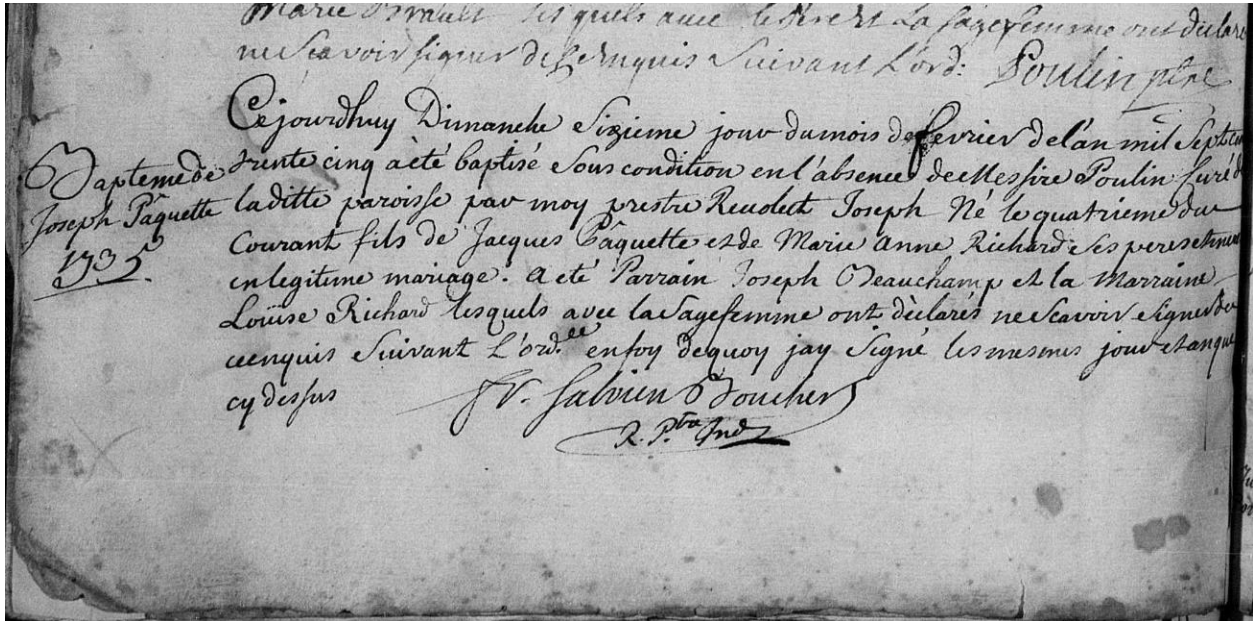 Marie Brault lesquels avec le Pere et La sagefemme ont declaré
ne Scavoir signer de ce enquis Suivant L'ord: Poulin ptre
Cejourdhuy Dimanche Sixieme jour du mois de fevrier de l'an mil Sept cen
Bapteme de
Joseph Pâquette
1735.
trente cinq a été baptisé Sous condition en l'absence de Messire Poulin Curé d
laditte paroisse par moy prestre Recolect Joseph Né le quatrieme du
Courant fils de Jacques Pâquette et de Marie Anne Richard Ses peres et meres
en legitime mariage. a été Parrain Joseph Beauchamp et la Marraine
Loüise Richard lesquels avec la Sagefemme ont dèclarés ne Scavoir Signer de
ce enquis Suivant L'ord.ce en foy de quoy jay Signé les mesmes jour et an que
cy dessus
fr. Salvien Boucher
R. Ptre Ind